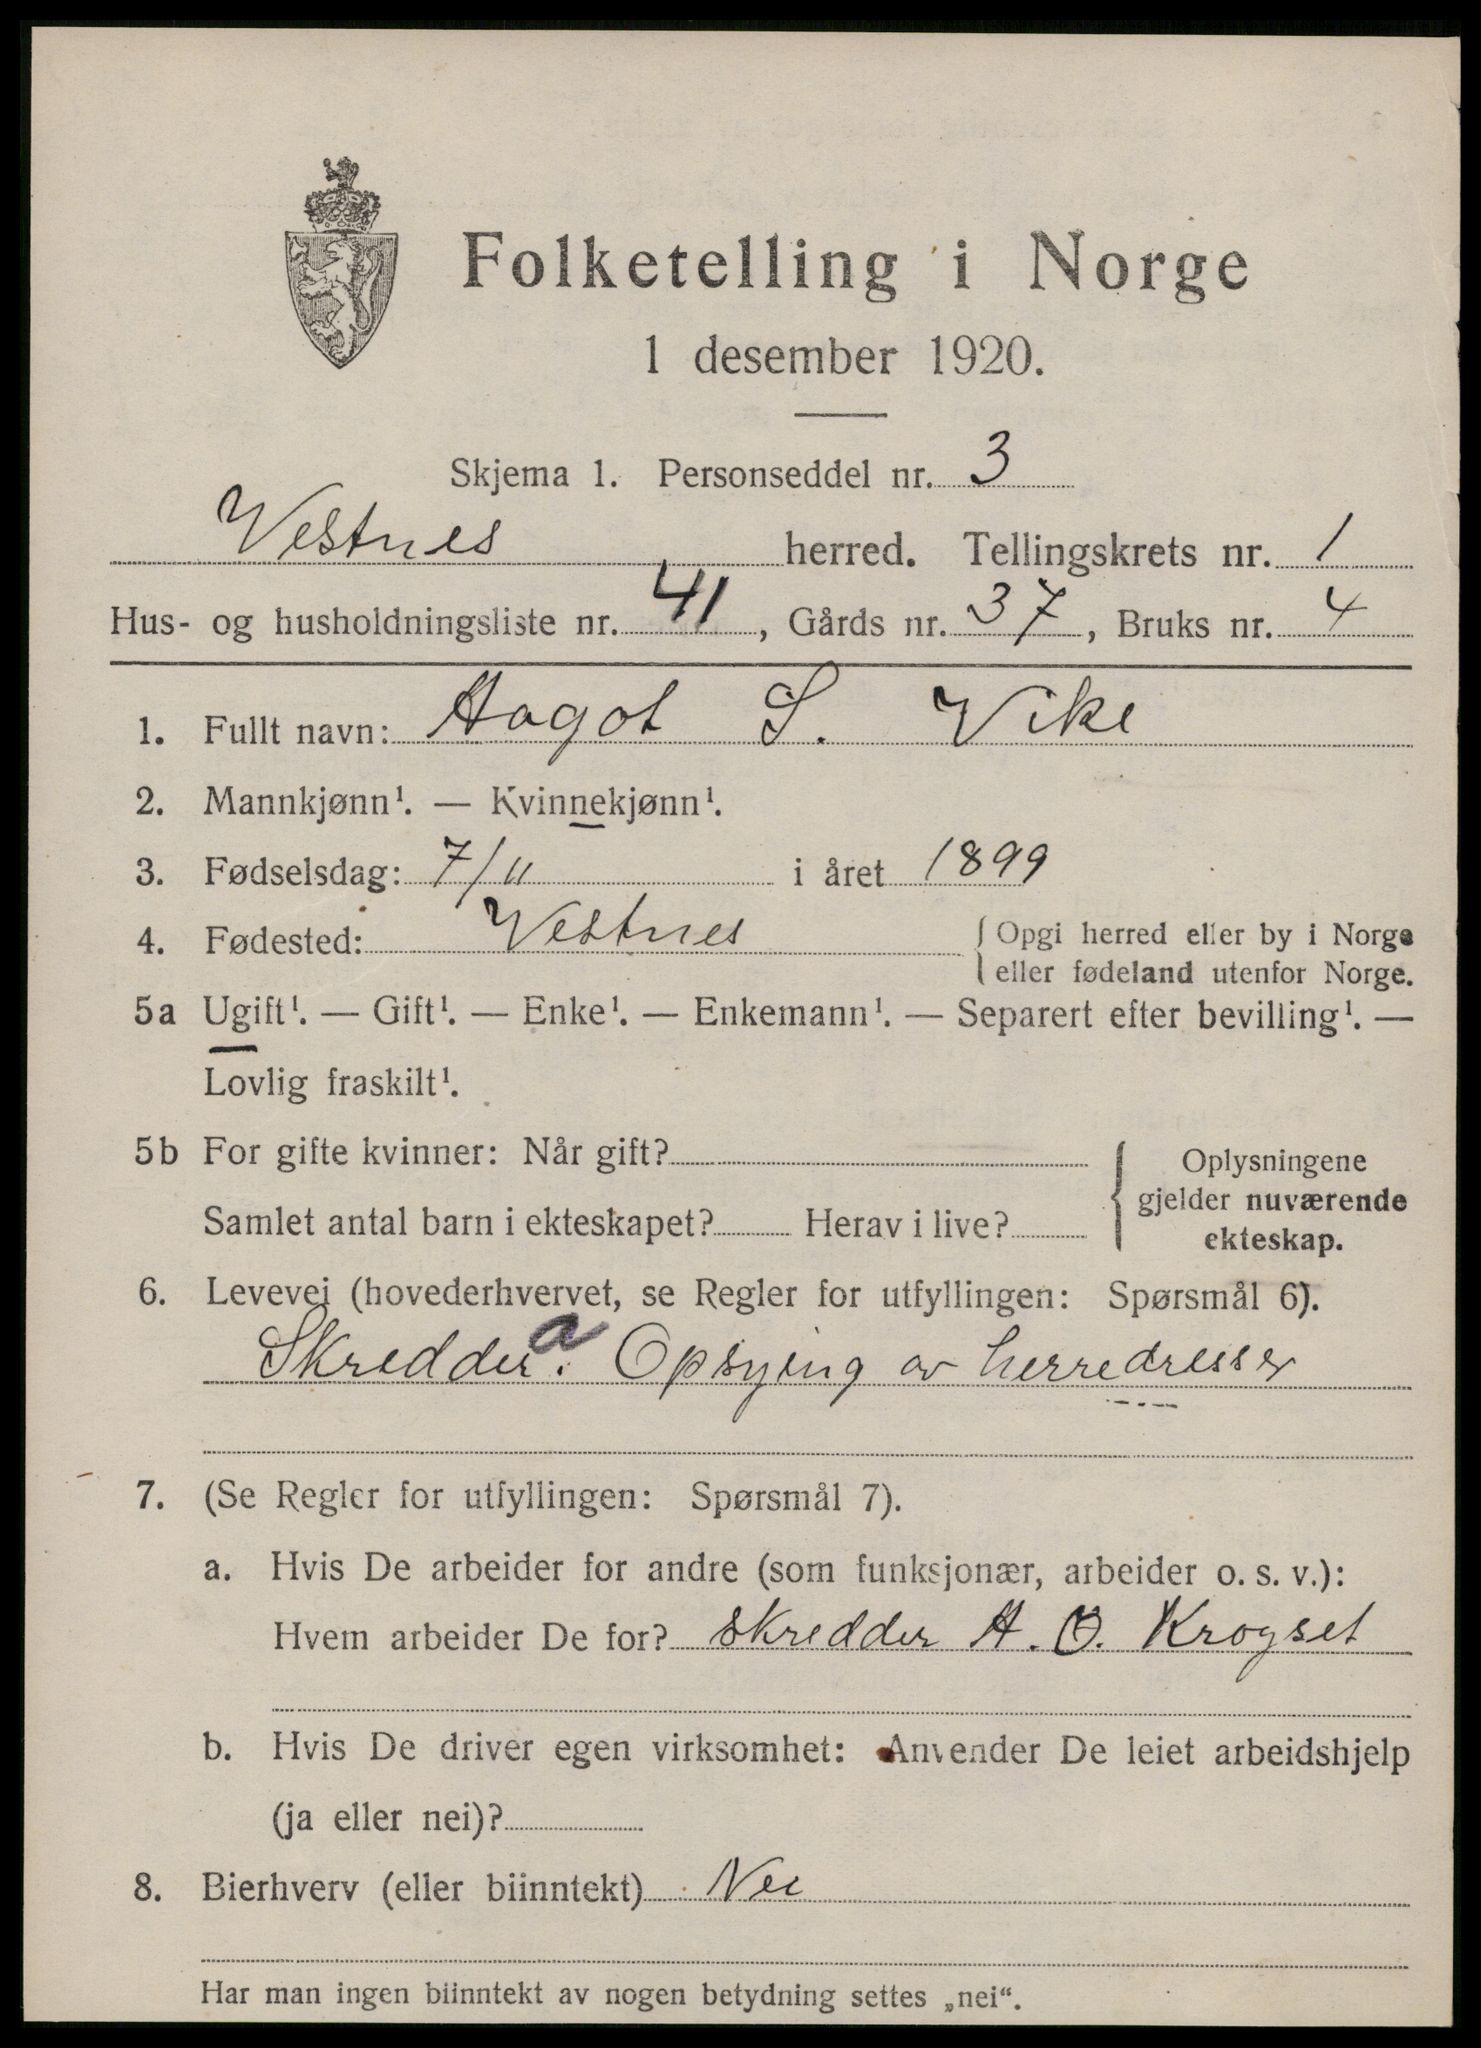 Folketelling i Norge
1 desember 1920.
Skjema 1. Personseddel nr. 3
Vestnes herred. Tellingskrets nr. 1
Hus- og husholdningsliste nr. 41, Gårds nr. 37, Bruks nr. 4
1. Fullt navn: Aagot S. Vike
2. Mannkjønn¹. — Kvinnekjønn¹.
3. Fødselsdag: 7/11 i året 1899
4. Fødested: Vestnes { Opgi herred eller by i Norge
eller fødeland utenfor Norge.
5a Ugift¹. — Gift¹. — Enke¹. — Enkemann¹. — Separert efter bevilling¹. —
Lovlig fraskilt¹.
5b For gifte kvinner: Når gift? { Oplysningene
gjelder nuværende
Samlet antal barn i ekteskapet? Herav i live?
ekteskap.
6. Levevei (hovederhvervet, se Regler for utfyllingen: Spørsmål 6).
Skredder. a Opsying av herredresser
7. (Se Regler for utfyllingen: Spørsmål 7).
a. Hvis De arbeider for andre (som funksjonær, arbeider o. s. v.):
Hvem arbeider De for? skredder A. O. Krogset
b. Hvis De driver egen virksomhet: Anvender De leiet arbeidshjelp
(ja eller nei)?
8. Bierhverv (eller biinntekt) Nei
Har man ingen biinntekt av nogen betydning settes „nei“.